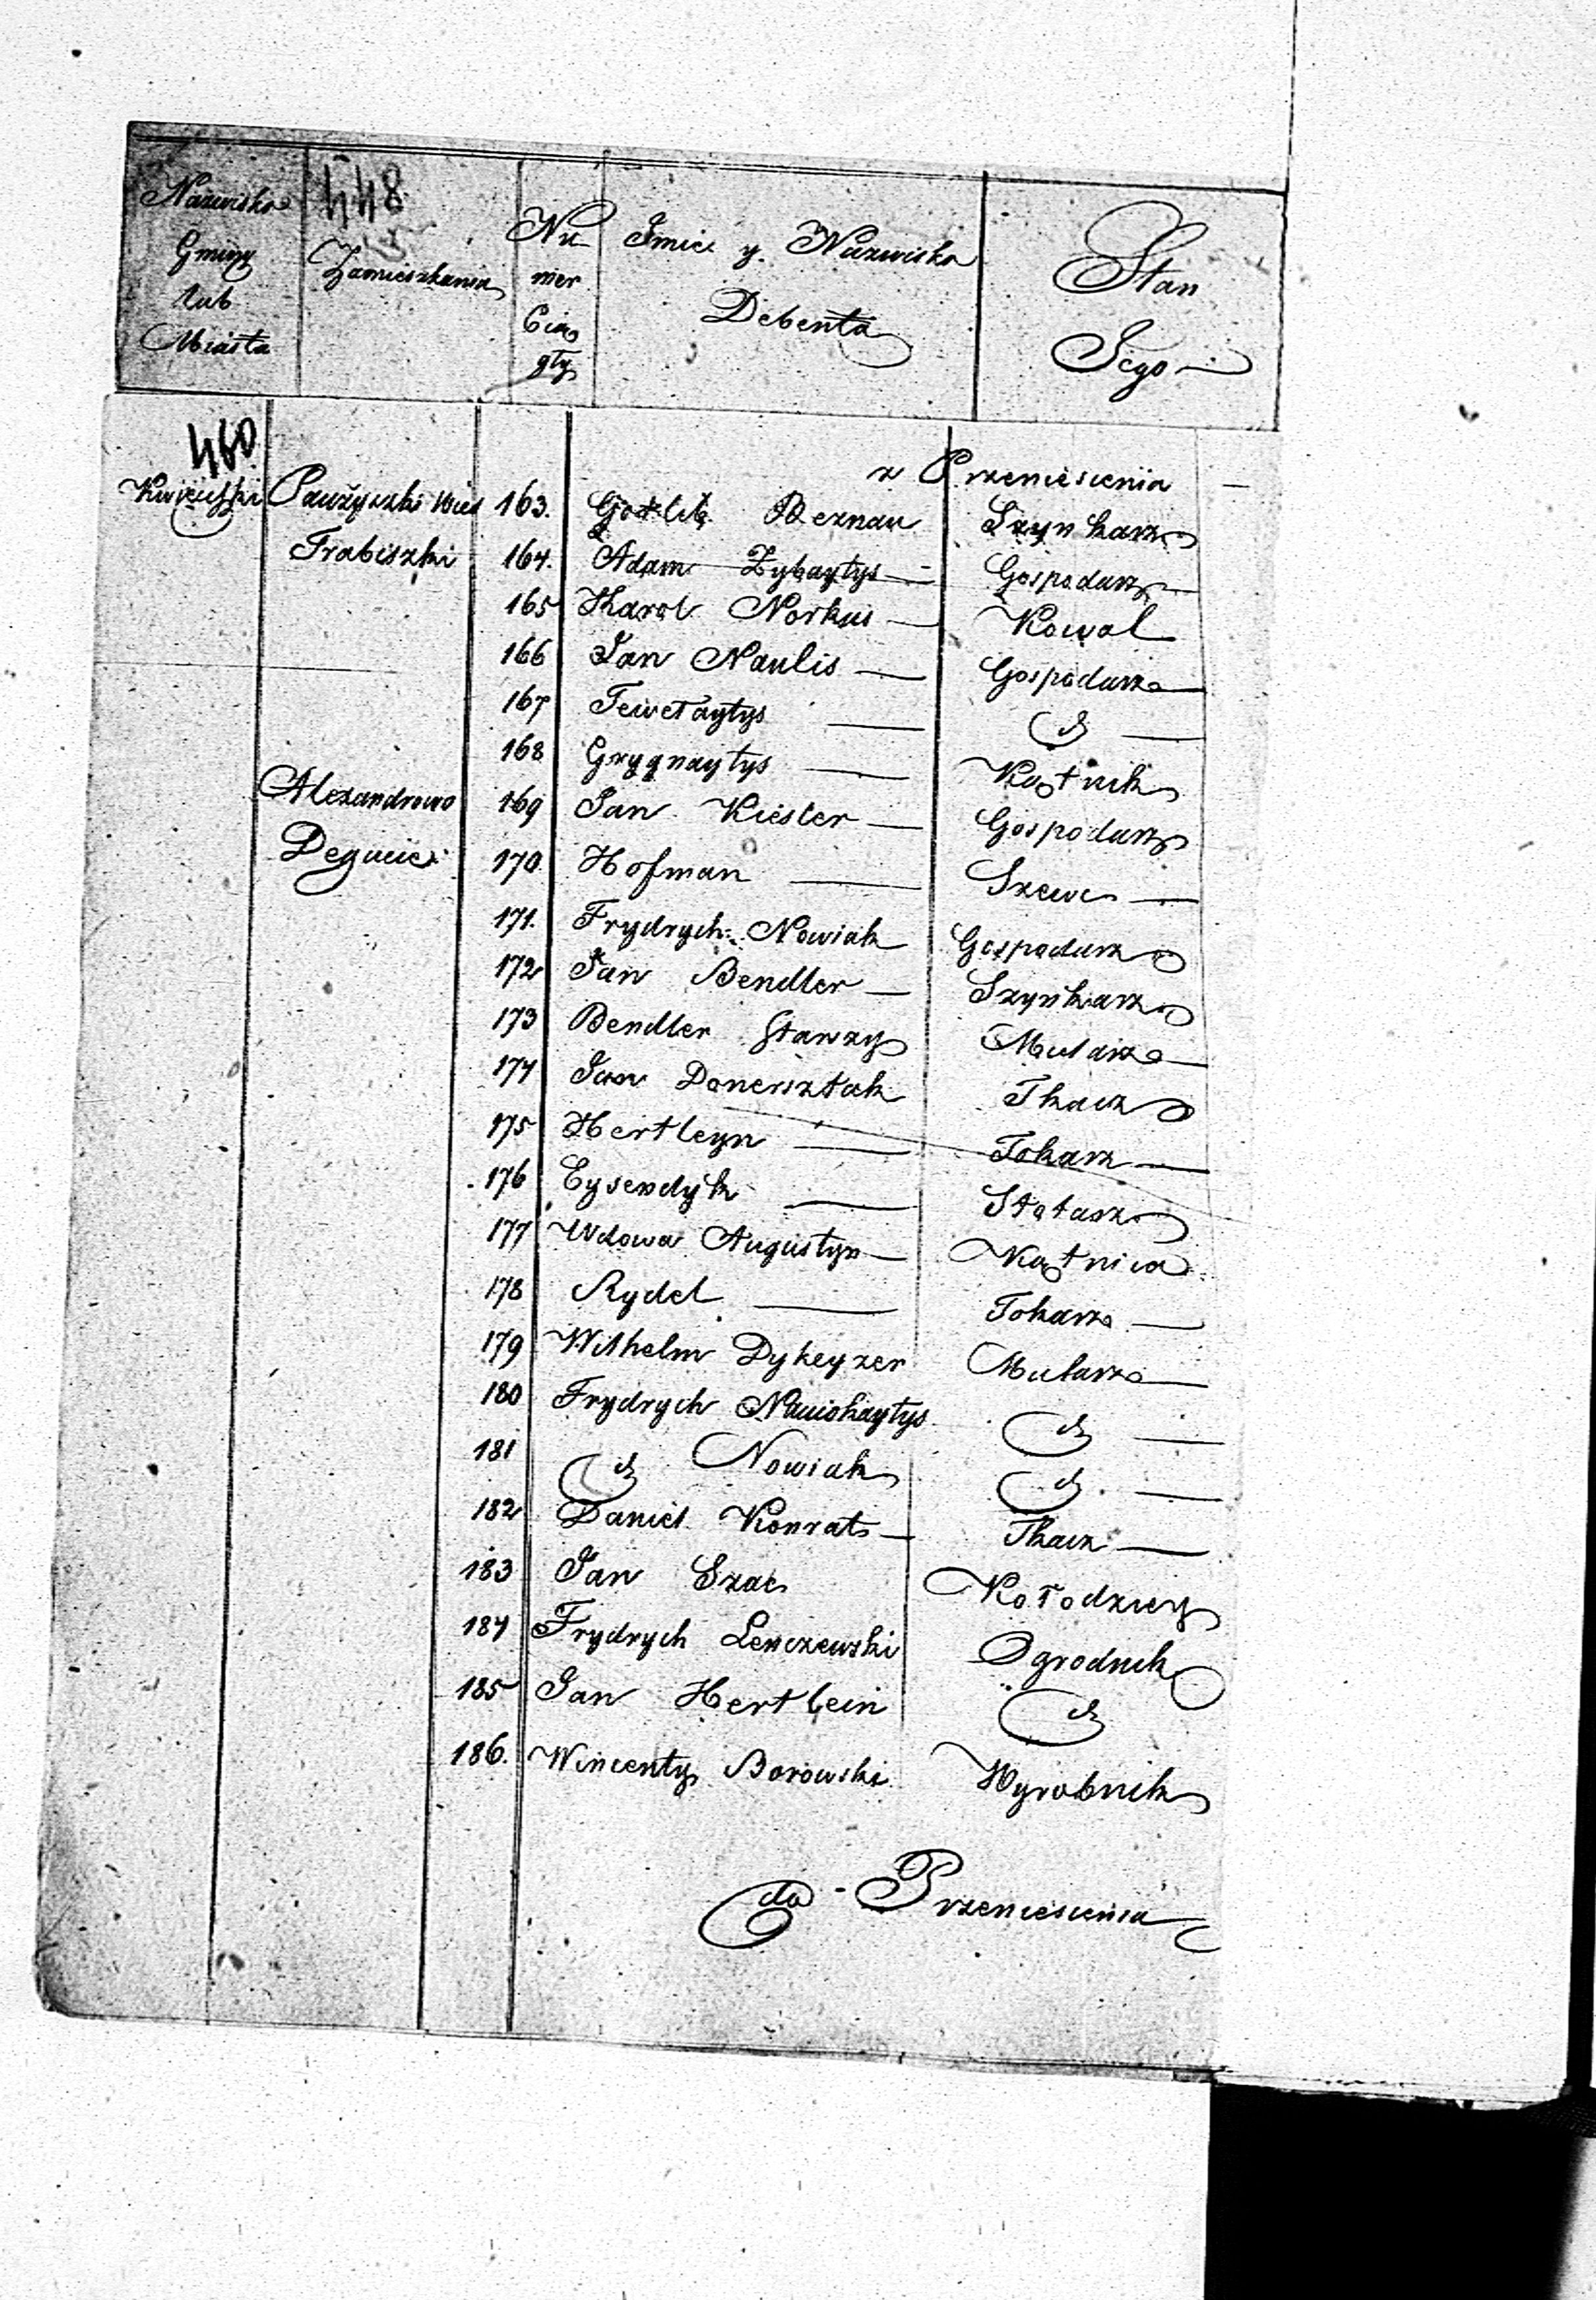 448
Nazwisko Gminy lub Miasta | Zamieszkania | Numer Ciągły | Imie y Nazwisko Debenta | Stan Jego
460
z Przeniesienia
Paużyszki Wieś 163. Gotlib Beznau Szynkarz
Trabiszki 164. Adam Zybaytys Gospodarz
165 Karol Norkus Kowal
166 Jan Naulis Gospodarz
167 Tewetaytys d
168 Grygnaytys Kątnik
Alexandrowo 169 Jan Kiesler Gospodarz
Degucie 170 Hofman Szewc
171. Frydrych Nowiak Gospodarz
172 Jan Bendler Szynkarz
173 Bendler Starszy Mularz
174 Jan Donersztak Tkacz
175 Hertleyn Tokarz
176 Eysendyk
177 Wdowa Augustyn Kątnica
178 Rydel Tokarz
179 Wilhelm Dykeyzer Mularz
180 Frydrych d
181 d Nowiak d
182 Daniel Konrats Tkacz
183 Jan Szac Kołodziey
184 Frydrych Lenczewski Ogrodnik
185 Jan Hertlein d
186. Wincenty Borowski Wyrobnik
do Przeniesienia